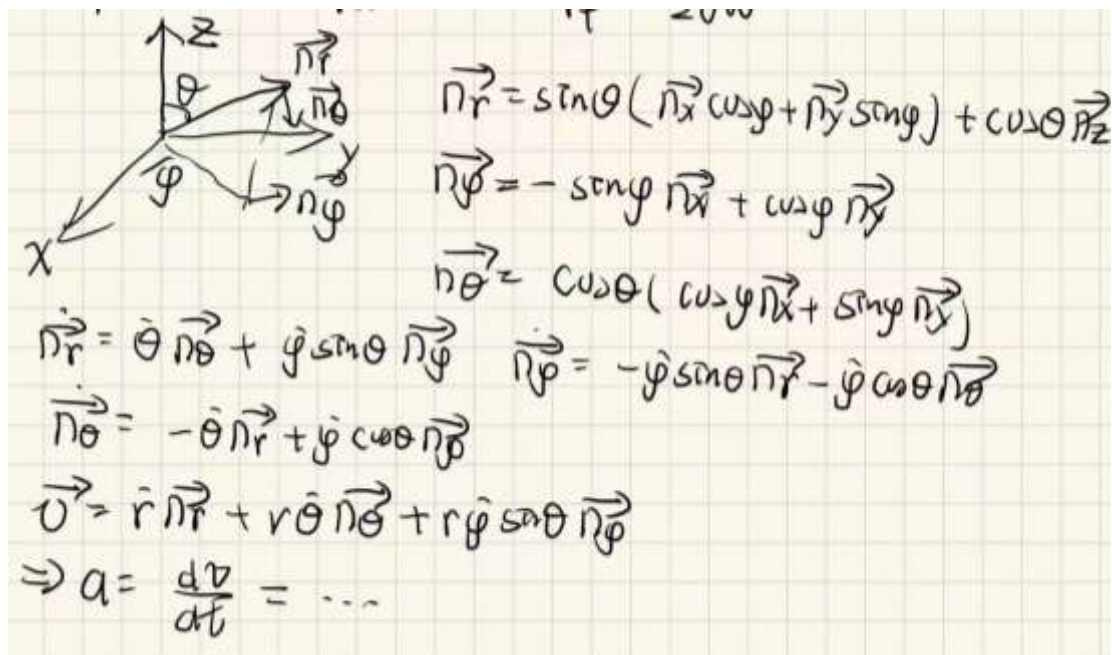 z
θ
n⃗r
n⃗θ
y
φ
n⃗φ
x
n⃗r = sinθ(n⃗x cosφ + n⃗y sinφ) + cosθ n⃗z
n⃗φ = - sinφ n⃗x + cosφ n⃗y
n⃗θ = cosθ( cosφ n⃗x + sinφ n⃗y)
ṅ⃗r = θ̇ n⃗θ + φ̇ sinθ n⃗φ ṅ⃗φ = -φ̇ sinθ n⃗r - φ̇ cosθ n⃗θ
ṅ⃗θ = -θ̇ n⃗r + φ̇ cosθ n⃗φ
v⃗ = ṙ n⃗r + rθ̇ n⃗θ + rφ̇ sinθ n⃗φ
⇒ a = dv/dt = ...